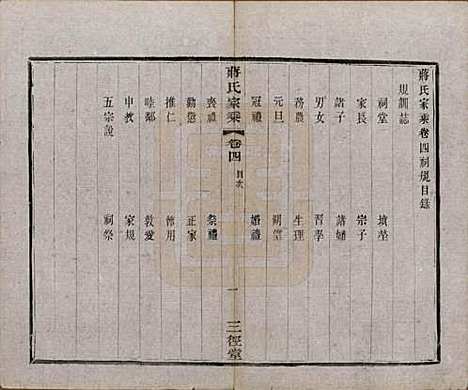 蔣氏家乘卷四祠規目錄
規訓誌
祠堂 墳塋
家長 宗子
諸子 諸婦
男女 習學
務農 生理
元旦 朔望
冠禮 婚禮
蔣氏家乘 卷四 目次 一 三徑堂
喪禮 祭禮
勸懲 正家
推仁 節用
睦鄰 敦愛
申教 家規
五宗說 祠祭